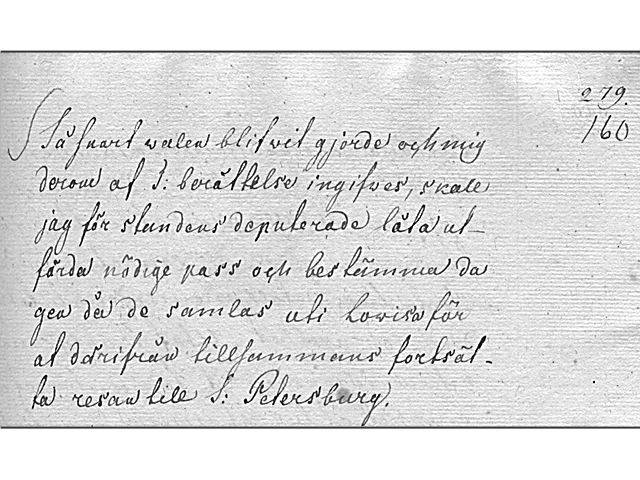 279.
160
Så snart valen blifvit gjorde och mig
derom af T: berättelse ingifves, skall
jag för standens deputerade låta ut-
färda nödige pass och bestämma da
gen då de samlas uti Lovisa för
at därifrån tillsammans fortsät-
ta resan till S: Petersburg.